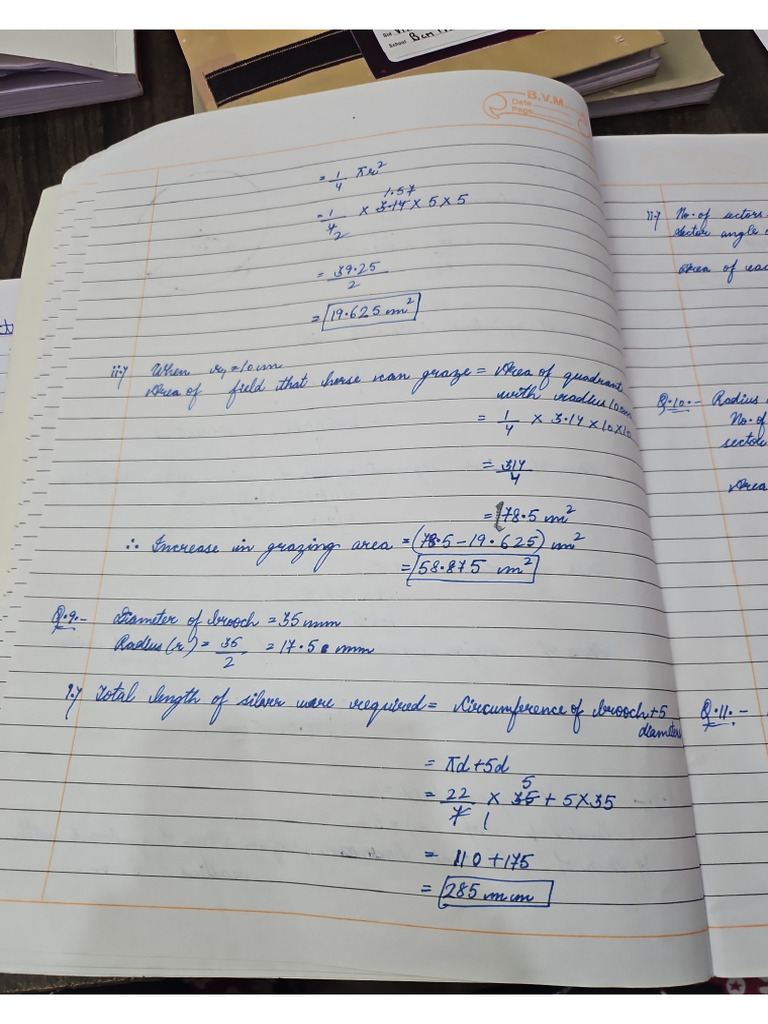 School
B.V.M
Date
Page
= 1/4 πr²
1.57
= 1/4 × 3.14 × 5 × 5
2
= 39.25/2
= 19.625 m²
ii.) When r₁ = 10 cm
Area of field that horse can graze = Area of quadrant
with radius 10 cm
= 1/4 × 3.14 × 10 × 10
= 314/4
= 78.5 m²
∴ Increase in grazing area = (78.5 - 19.625) m²
= 58.875 m²
Q.9.- Diameter of brooch = 35 mm
Radius (r) = 35/2 = 17.5 mm
i.) Total length of silver wire required = Circumference of brooch + 5
diameter
= πd + 5d
5
= 22/7 × 35 + 5 × 35
1
= 110 + 175
= 285 mm
ii.) No. of sectors
sector angle
Area of
Q.10.- Radius
No. of
sector
Area
Q.11.-